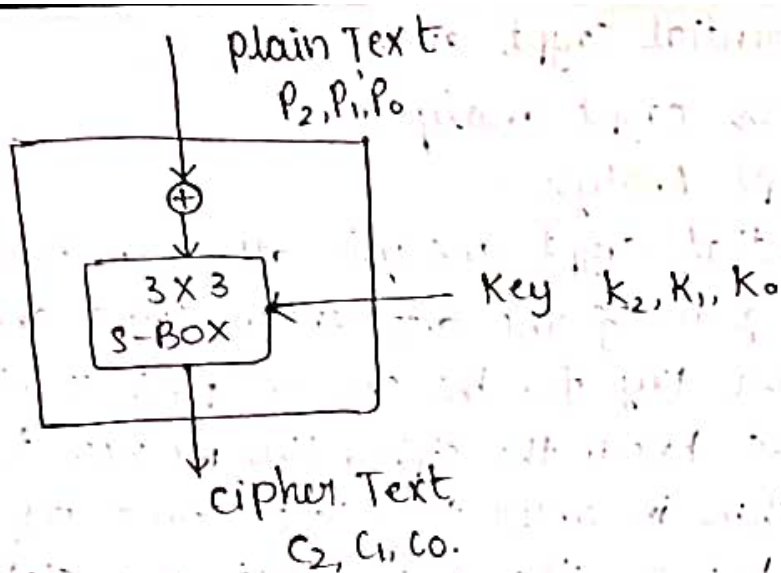 plain Text.
P2, P1, P0
+
3 X 3
S-BOX
Key K2, K1, K0
cipher Text
C2, C1, C0.